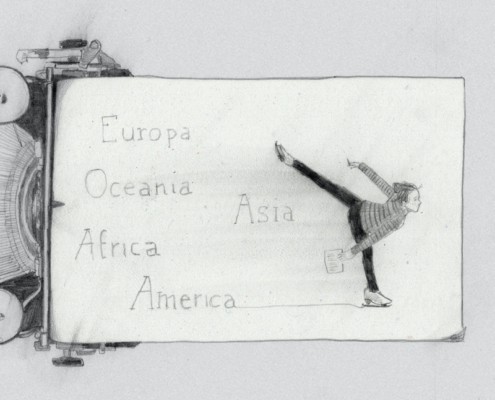 Europa
Oceania
Asia
Africa
America